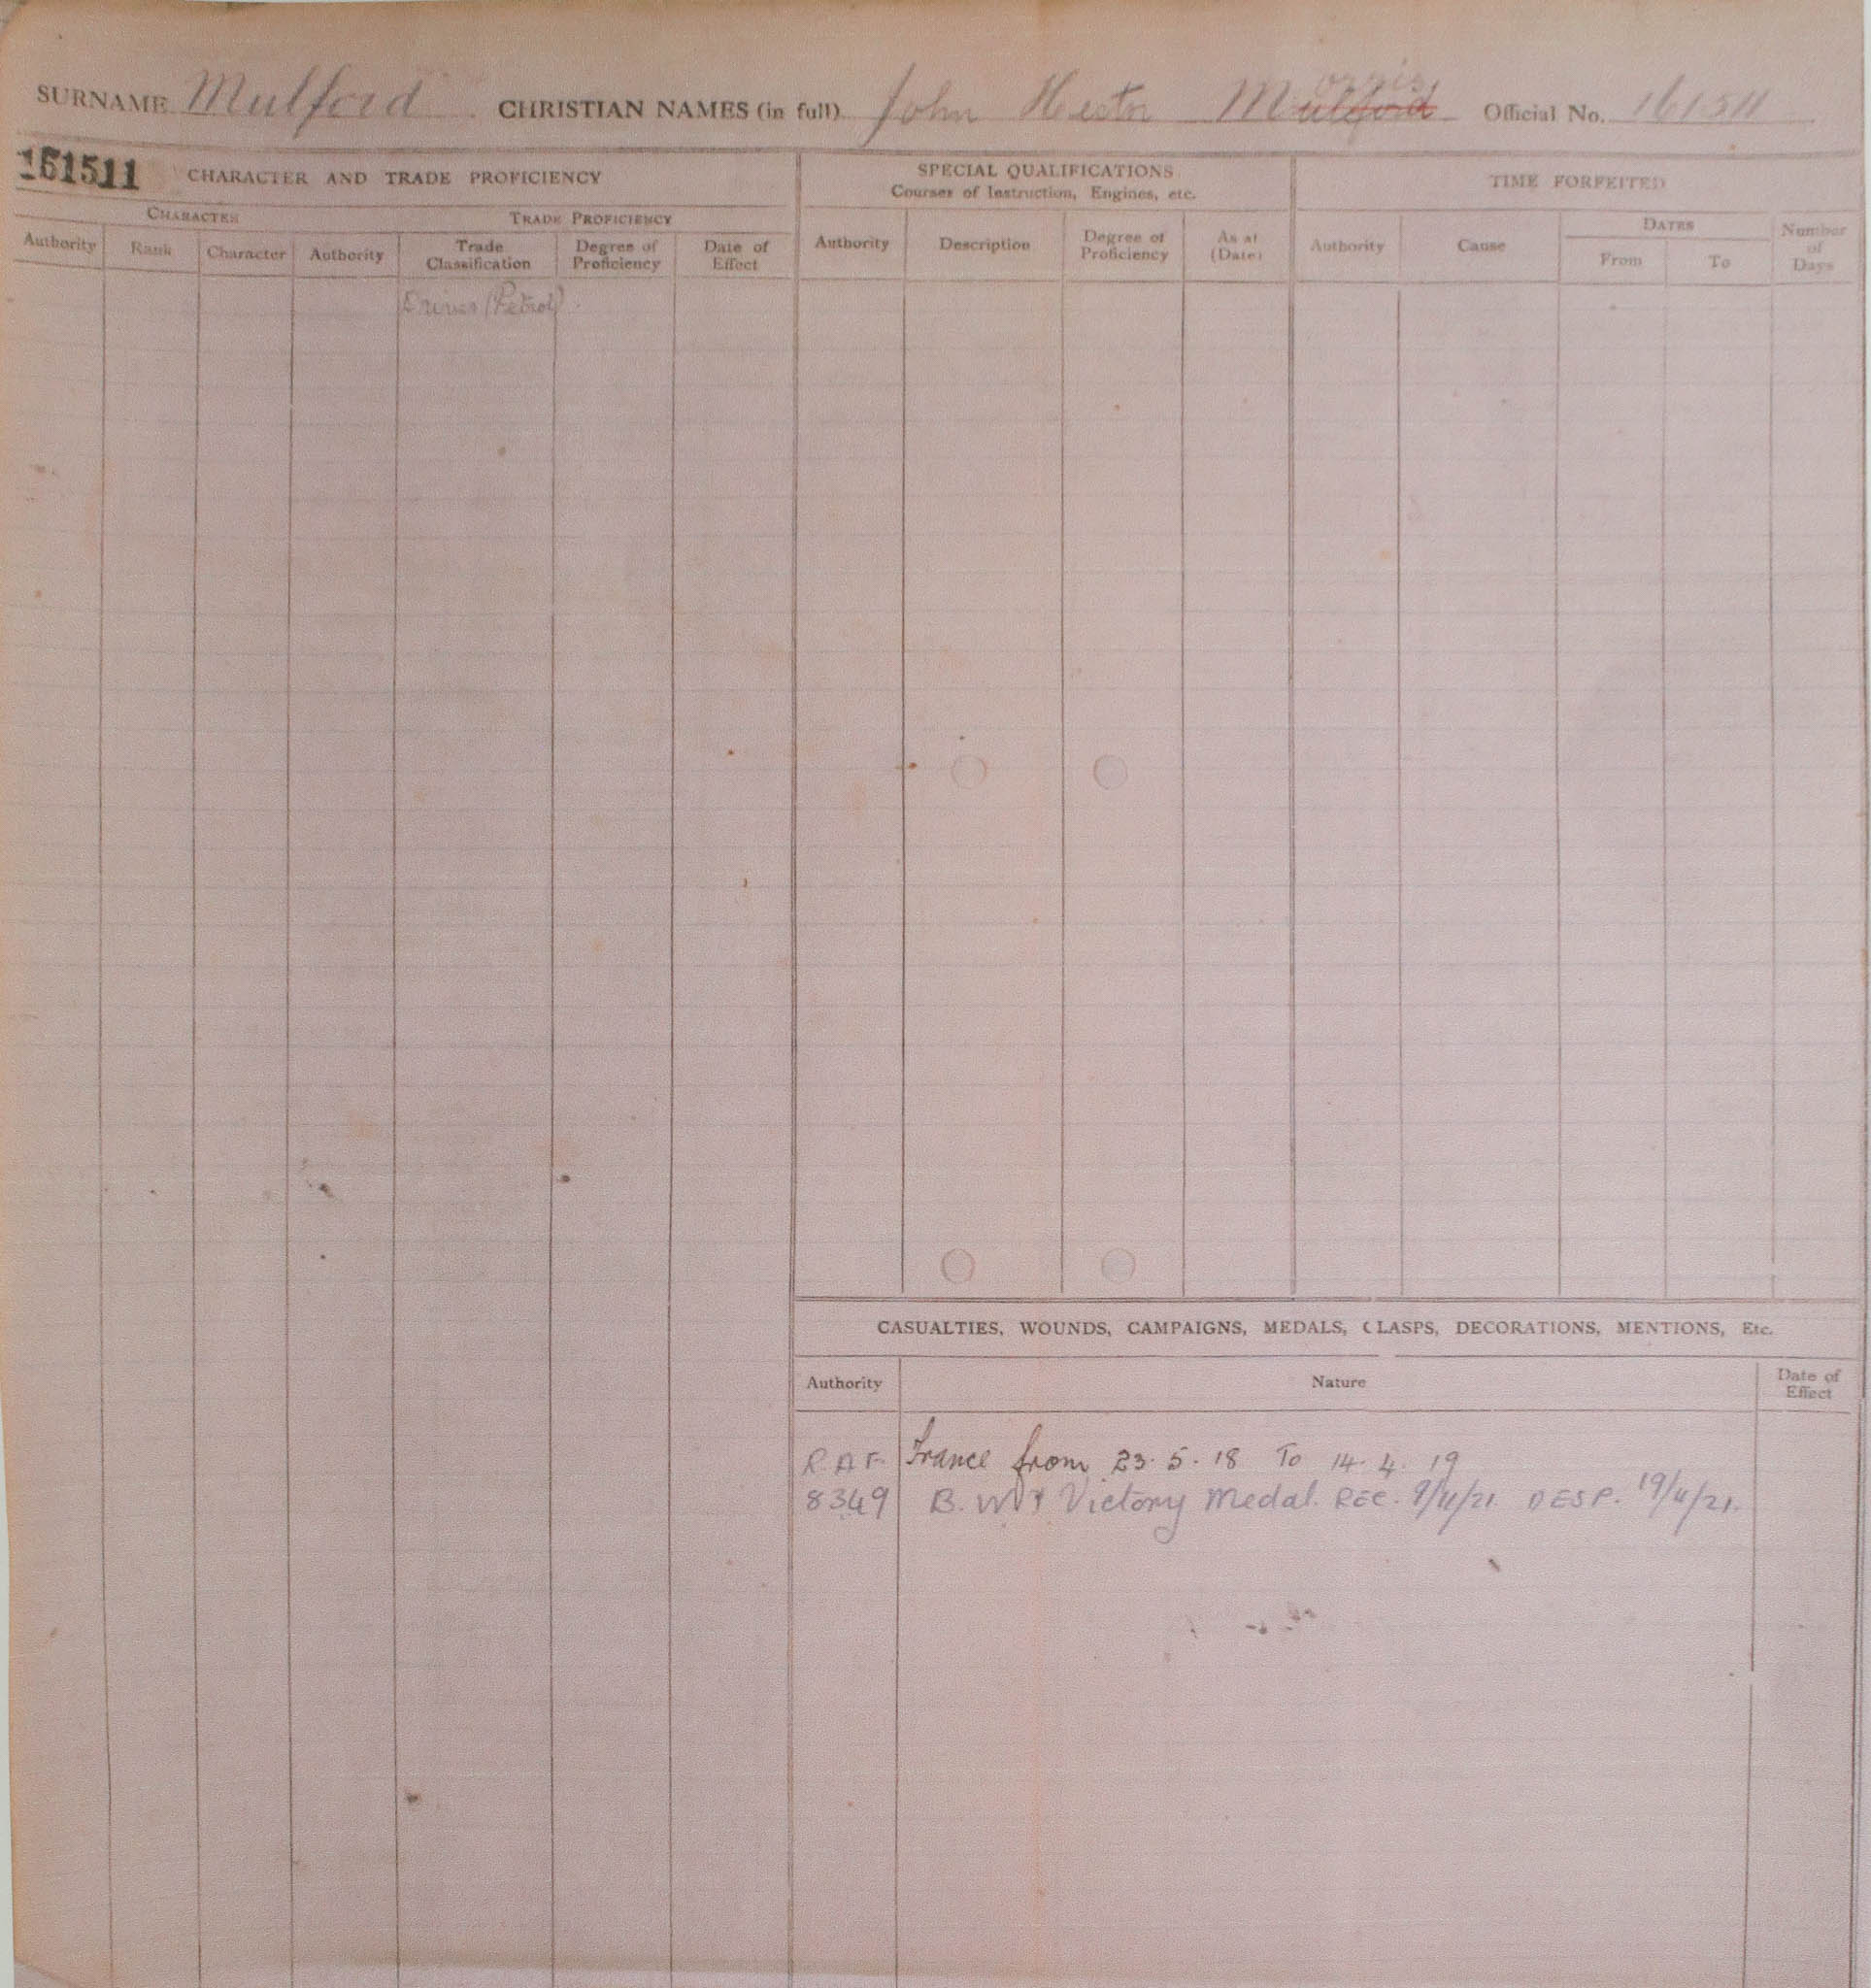 SURNAME Mulford CHRISTIAN NAMES (in full) John Hector Morris Mulford Official No. 161511
161511 CHARACTER AND TRADE PROFICIENCY
CHARACTER TRADE PROFICIENCY
Authority Rank Character Authority Trade Classification Degree of Proficiency Date of Effect
Driver (Petrol).
SPECIAL QUALIFICATIONS
Courses of Instruction, Engines, etc.
Authority Description Degree of Proficiency As at (Date)
TIME FORFEITED
Authority Cause DATES From To Number of Days
CASUALTIES, WOUNDS, CAMPAIGNS, MEDALS, CLASPS, DECORATIONS, MENTIONS, Etc.
Authority Nature Date of Effect
R.A.F. France from 23.5.18 To 14.4.19
8349 B.W & Victory Medal. REC. 9/11/21 DESP. 19/11/21.